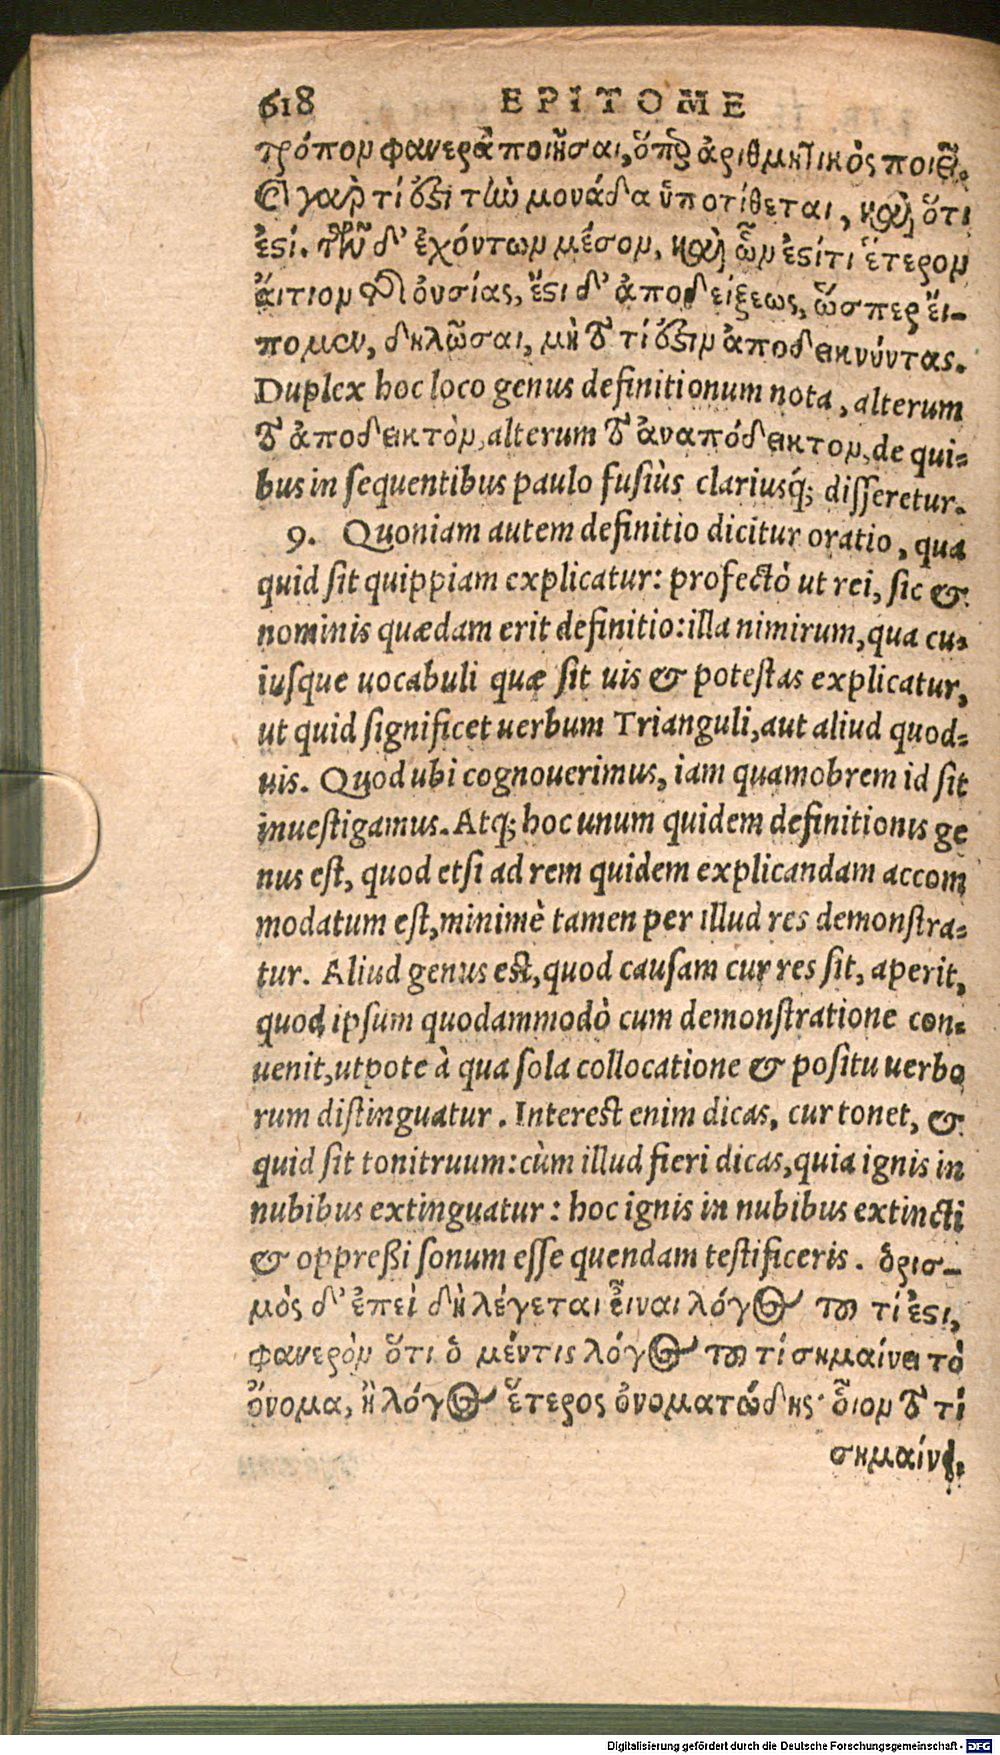 618 EPITOME
τρόπον φανερὰ ποιῆσαι, ὅπερ ἀριθμητικὸς ποιεῖ.
καὶ γὰρ τί ἐστι τὴν μονάδα ὑποτίθεται, καὶ ὅτι
ἐστί. τῶν δ' ἐχόντων μέσον, καὶ ὧν ἐστί τι ἕτερον
ἄιτιον τῆς οὐσίας, ἔστι δ' ἀποδείξεως, ὥσπερ ἔι-
πομεν, δηλῶσαι, μὴ τὸ τί ἐστιν ἀποδεικνύντας.
Duplex hoc loco genus definitionum nota, alterum
τὸ ἀποδεικτὸν, alterum τὸ ἀναπόδεικτον, de qui-
bus in sequentibus paulo fusiùs clariusq́; disseretur.
9. Quoniam autem definitio dicitur oratio, qua
quid sit quippiam explicatur: profectò ut rei, sic &
nominis quædam erit definitio: illa nimirum, qua cu-
iusque uocabuli quæ sit uis & potestas explicatur,
ut quid significet uerbum Trianguli, aut aliud quod-
uis. Quod ubi cognouerimus, iam quamobrem id sit
inuestigamus. Atq; hoc unum quidem definitionis ge
nus est, quod etsi ad rem quidem explicandam accom
modatum est, minimè tamen per illud res demonstra-
tur. Aliud genus est, quod causam cur res sit, aperit,
quod ipsum quodammodò cum demonstratione con-
uenit, utpote à qua sola collocatione & positu uerbo
rum distinguatur. Interest enim dicas, cur tonet, &
quid sit tonitruum: cùm illud fieri dicas, quia ignis in
nubibus extinguatur: hoc ignis in nubibus extincti
& oppreßi sonum esse quendam testificeris. ὁρισ-
μὸς δ' ἐπεὶ δὴ λέγεται εἶναι λόγος τοῦ τί ἐστι,
φανερὸν ὅτι ὁ μέν τις λόγος τοῦ τί σημαίνει τὸ
ὄνομα, ἢ λόγος ἕτερος ὀνοματώδης· οἷον τὸ τί
σημαίνει.
Digitalisierung gefördert durch die Deutsche Forschungsgemeinschaft - DFG